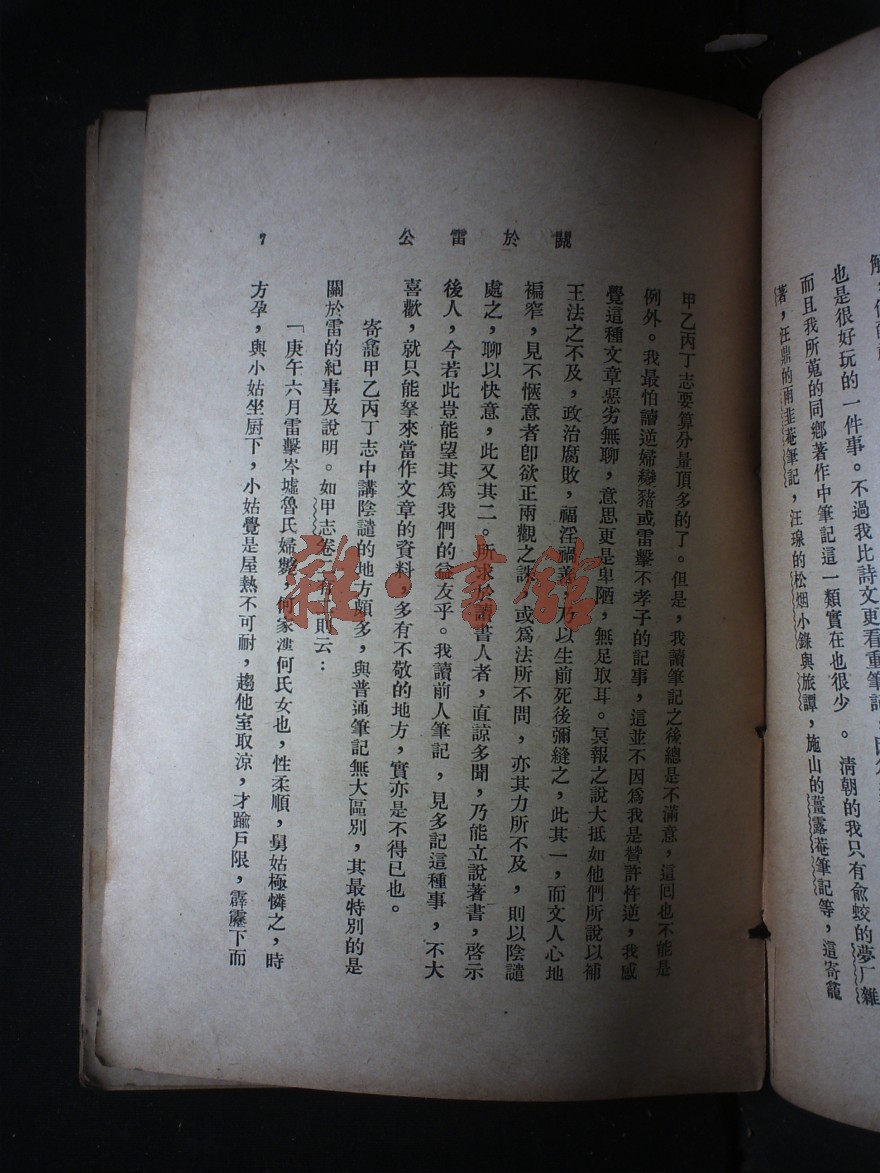 解
也是很好玩的一件事。不過我比詩文更看重筆記
而且我所蒐的同鄉著作中筆記這一類實在也很少。清朝的我只有俞蛟的夢厂雜
著,汪鼎的雨韭菴筆記,汪瑔的松烟小錄與旅譚,施山的薑露菴筆記等,這寄龕
關於雷公
7
甲乙丙丁志要算分量頂多的了。但是,我讀筆記之後總是不滿意,這囘也不能是
例外。我最怕讀逆婦變豬或雷擊不孝子的記事,這並不因爲我是贊許忤逆,我感
覺這種文章惡劣無聊,意思更是卑陋,無足取耳。冥報之說大抵如他們所說以補
王法之不及,政治腐敗,福淫禍善,乃以生前死後彌縫之,此其一,而文人心地
褊窄,見不愜意者卽欲正兩觀之誅,或爲法所不問,亦其力所不及,則以陰譴
處之,聊以快意,此又其二。所求於讀書人者,直諒多聞,乃能立說著書,啓示
後人,今若此豈能望其爲我們的益友乎。我讀前人筆記,見多記這種事,不大
喜歡,就只能拏來當作文章的資料,多有不敬的地方,實亦是不得已也。
寄龕甲乙丙丁志中講陰譴的地方頗多,與普通筆記無大區別,其最特別的是
關於雷的紀事及說明。如甲志卷二有一則云:
「庚午六月雷擊岑墟魯氏婦斃,何家漊何氏女也,性柔順,舅姑極憐之,時
方孕,與小姑坐厨下,小姑覺是屋熱不可耐,趨他室取涼,才踰戶限,霹靂下而
雜·書館